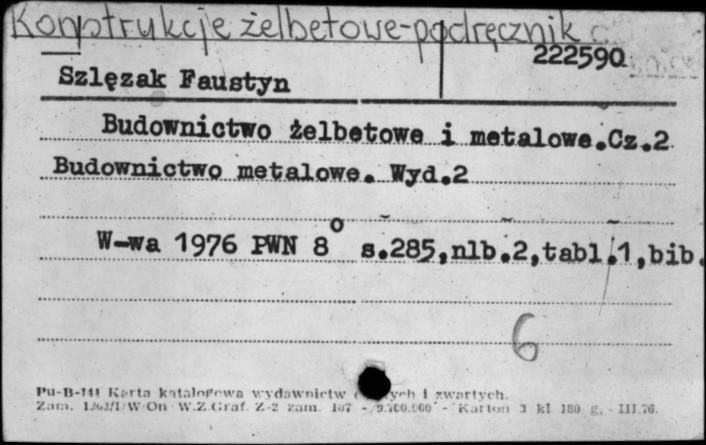 Konstrukcje żelbetowe-podręcznik
222590
Szlęzak Faustyn
Budownictwo żelbetowe i metalowe.Cz.2
Budownictwo metalowe. Wyd.2
W-wa 1976 PWN 8° s.285,nlb.2,tabl.1,bib.
6
Pu-B-144 Karta katalogowa wydawnictw i zwartych.
Zam. W.Z.Graf. Z-2 zam. 107 - 9.700.000 - Karton 3 kl 180 g. - III.76.